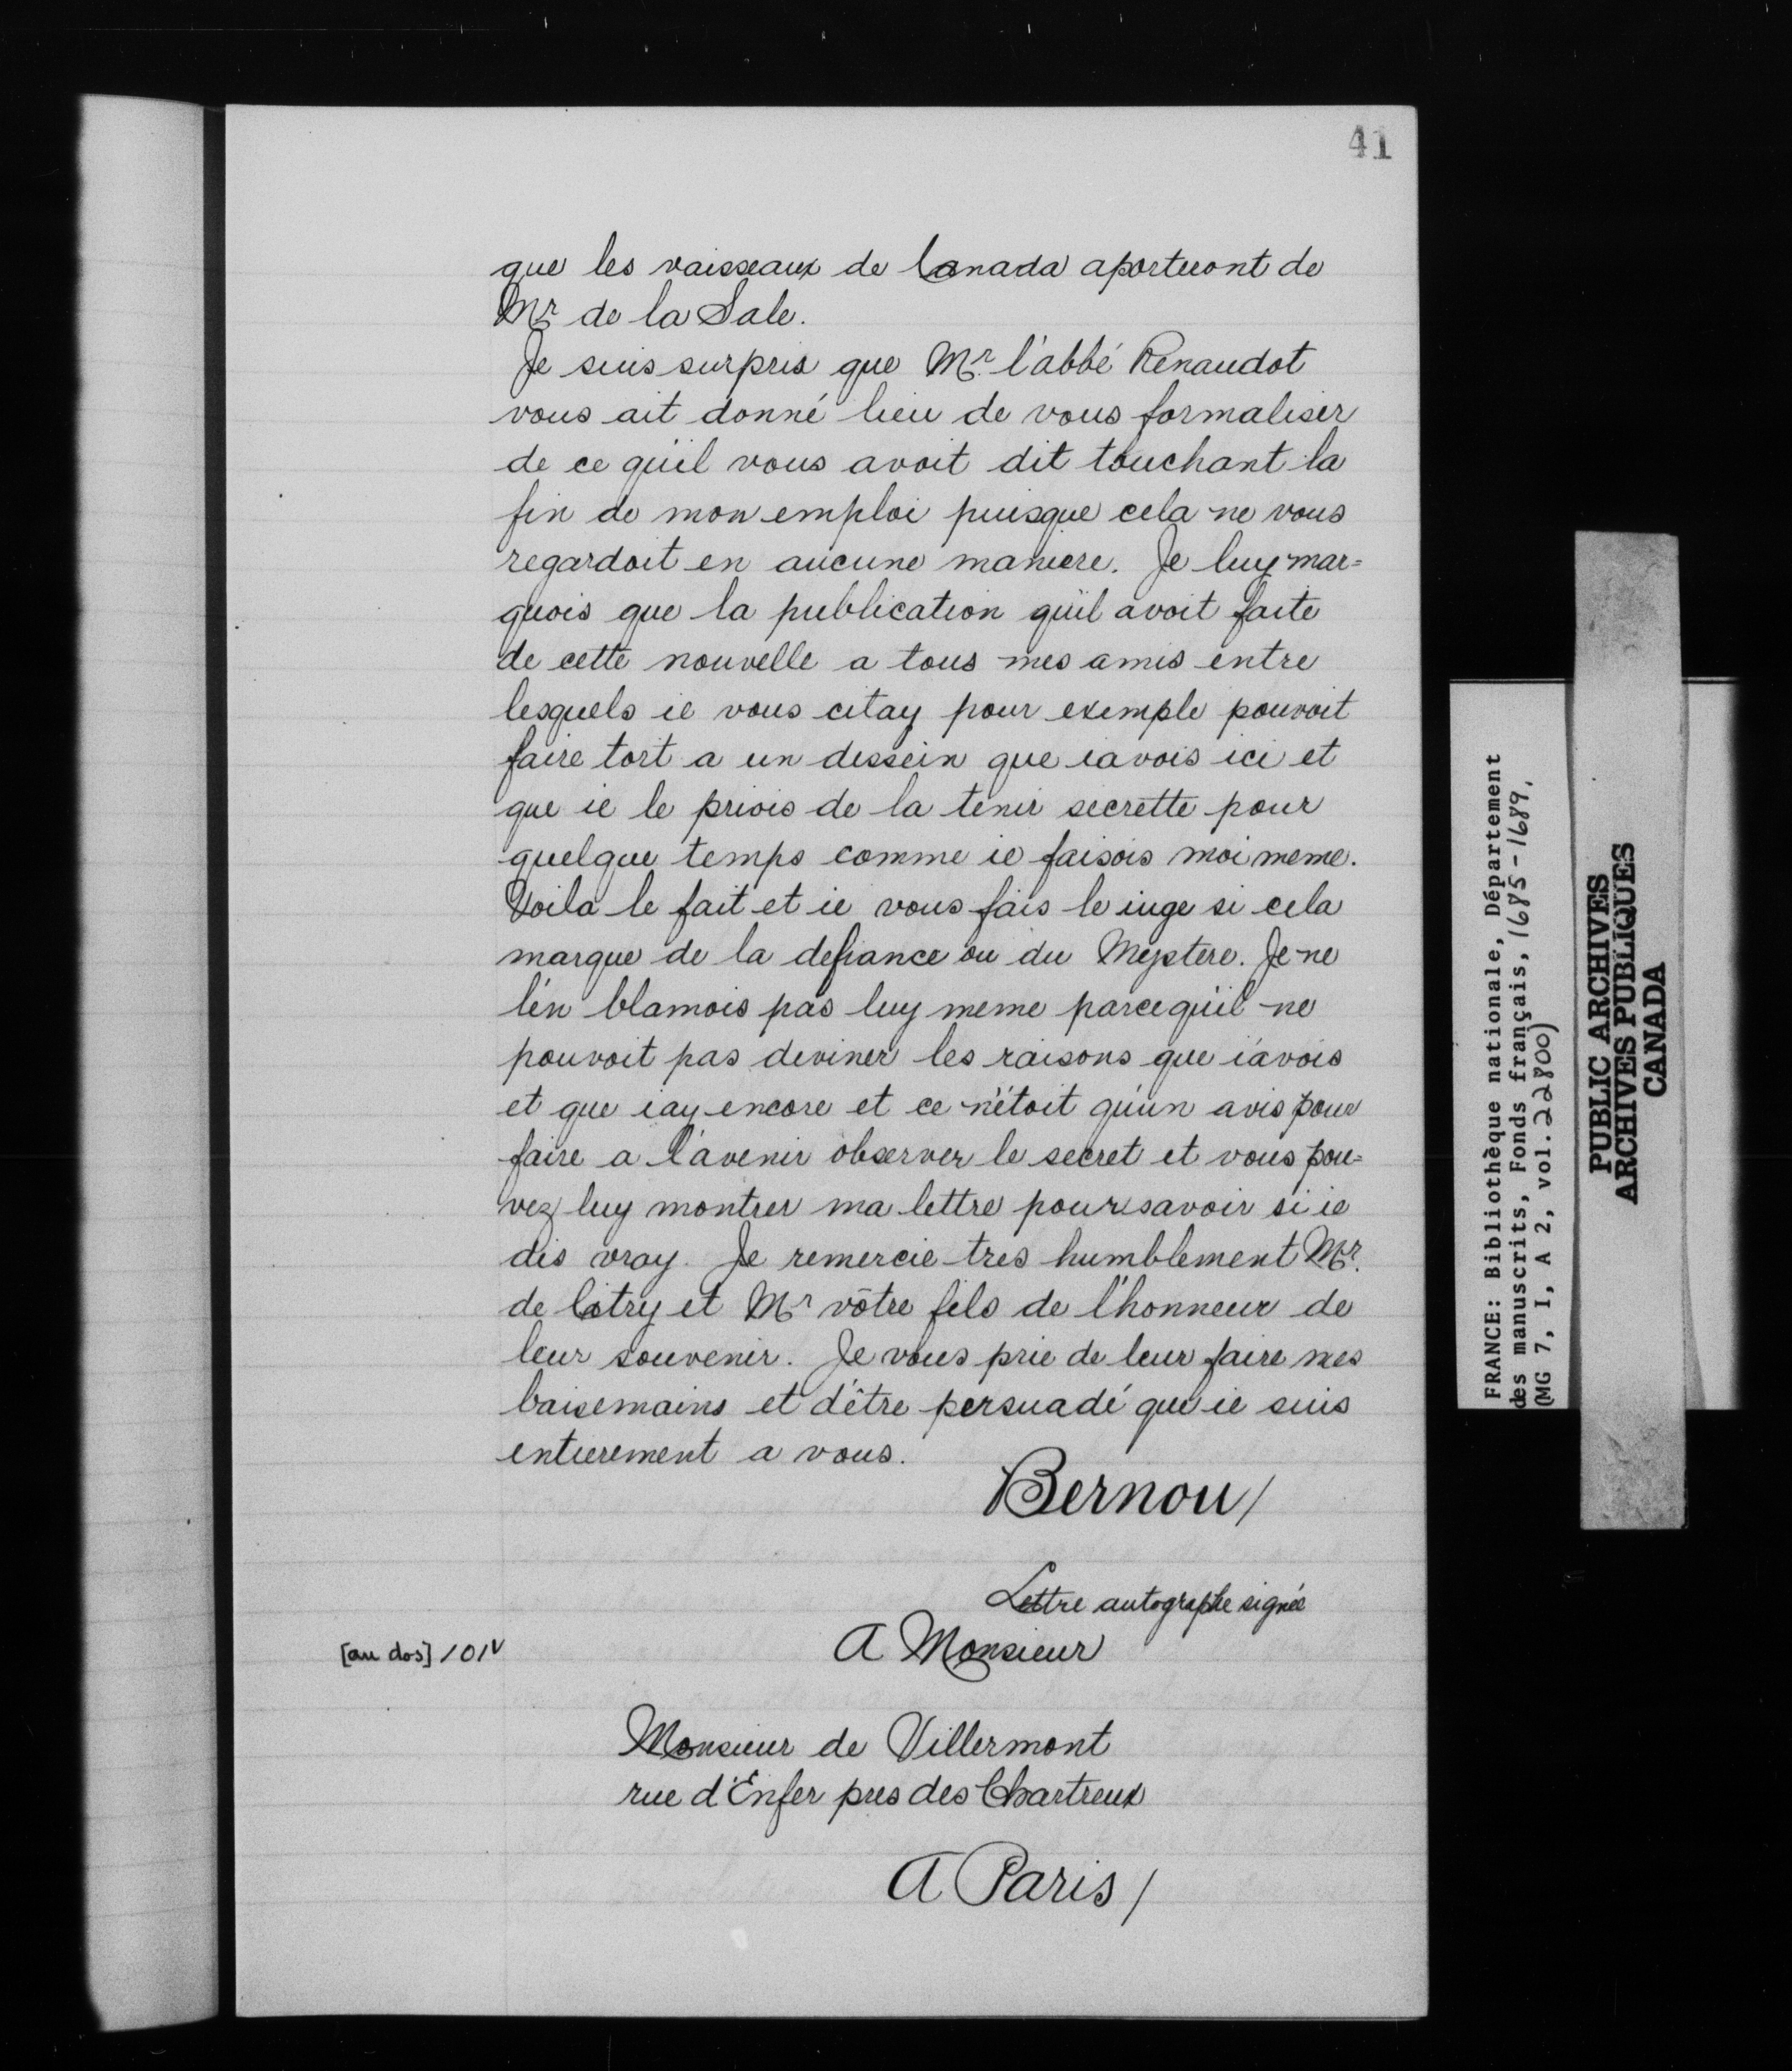 41
que les vaisseaux de Canada aporteront de
Mr de la Sale.
Je suis surpris que Mr l'abbé Renaudot
vous ait donné lieu de vous formaliser
de ce qu'il vous avoit dit touchant la
fin de mon emploi puisque cela ne vous
regardoit en aucune maniere. Je luy mar=
quois que la publication qu'il avoit faite
de cette nouvelle a tous mes amis entre
lesquels ie vous citay pour exemple pouvoit
faire tort a un dessein que iavois ici et
que ie le priois de la tenir secrette pour
quelque temps comme ie faisois moi meme.
Voila le fait et ie vous fais le iuge si cela
marque de la defiance ou du Mystere. Je ne
l'en blamois pas luy meme parcequ'il ne
pouvoit pas deviner les raisons que i'avois
et que iay encore et ce n'étoit qu'un avis pour
faire a l'avenir observer le secret et vous pou=
vez luy montrer ma lettre pour savoir si ie
dis vray. Je remercie tres humblement Mr.
de Cotry et Mr vôtre fils de l'honneur de
leur souvenir. Je vous prie de leur faire mes
baisemains et d'être persuadé que ie suis
entierement a vous.
Bernou/
Lettre autographe signée
[au dos] 101v A Monsieur
Monsieur de Villermont
rue d'Enfer pres des Chartreux
A Paris/
FRANCE: Bibliothèque nationale, Département
des manuscrits, Fonds français, 1685-1689.
(MG 7, I, A 2, vol. 22800)
PUBLIC ARCHIVES
ARCHIVES PUBLIQUES
CANADA